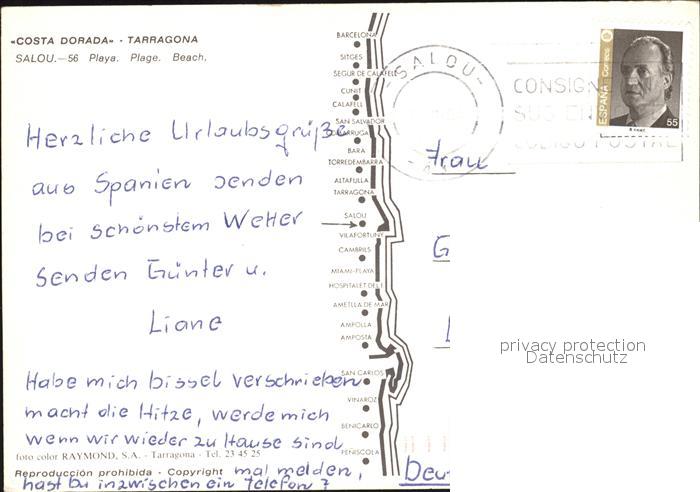 «COSTA DORADA» - TARRAGONA
SALOU.—56 Playa. Plage. Beach.
Herzliche Urlaubsgrüße
aus Spanien senden
bei schönstem Wetter
senden Günter u.
Liane
Habe mich bissel verschrieben
macht die Hitze, werde mich
wenn wir wieder zu Hause sind
foto color RAYMOND, S.A. - Tarragona - Tel. 23 45 25
Reproducción prohibida - Copyright mal melden,
hast Du inzwischen ein Telefon?
BARCELONA
SITGES
SEGUR DE CALAFELL
CUNIT
CALAFELL
SAN SALVADOR
BARA
TORREDEMBARRA
ALTAFULLA
TARRAGONA
SALOU
VILAFORTUNY
CAMBRILS
MIAMI-PLAYA
HOSPITALET DEL I.
AMETLLA DE MAR
AMPOLLA
AMPOSTA
SAN CARLOS
VINAROZ
BENICARLO
PEÑISCOLA
-SALOU-
CONSIGN
CODIGO POSTAL
ESPAÑA Correos
55
Frau
G
Deu
privacy protection
Datenschutz